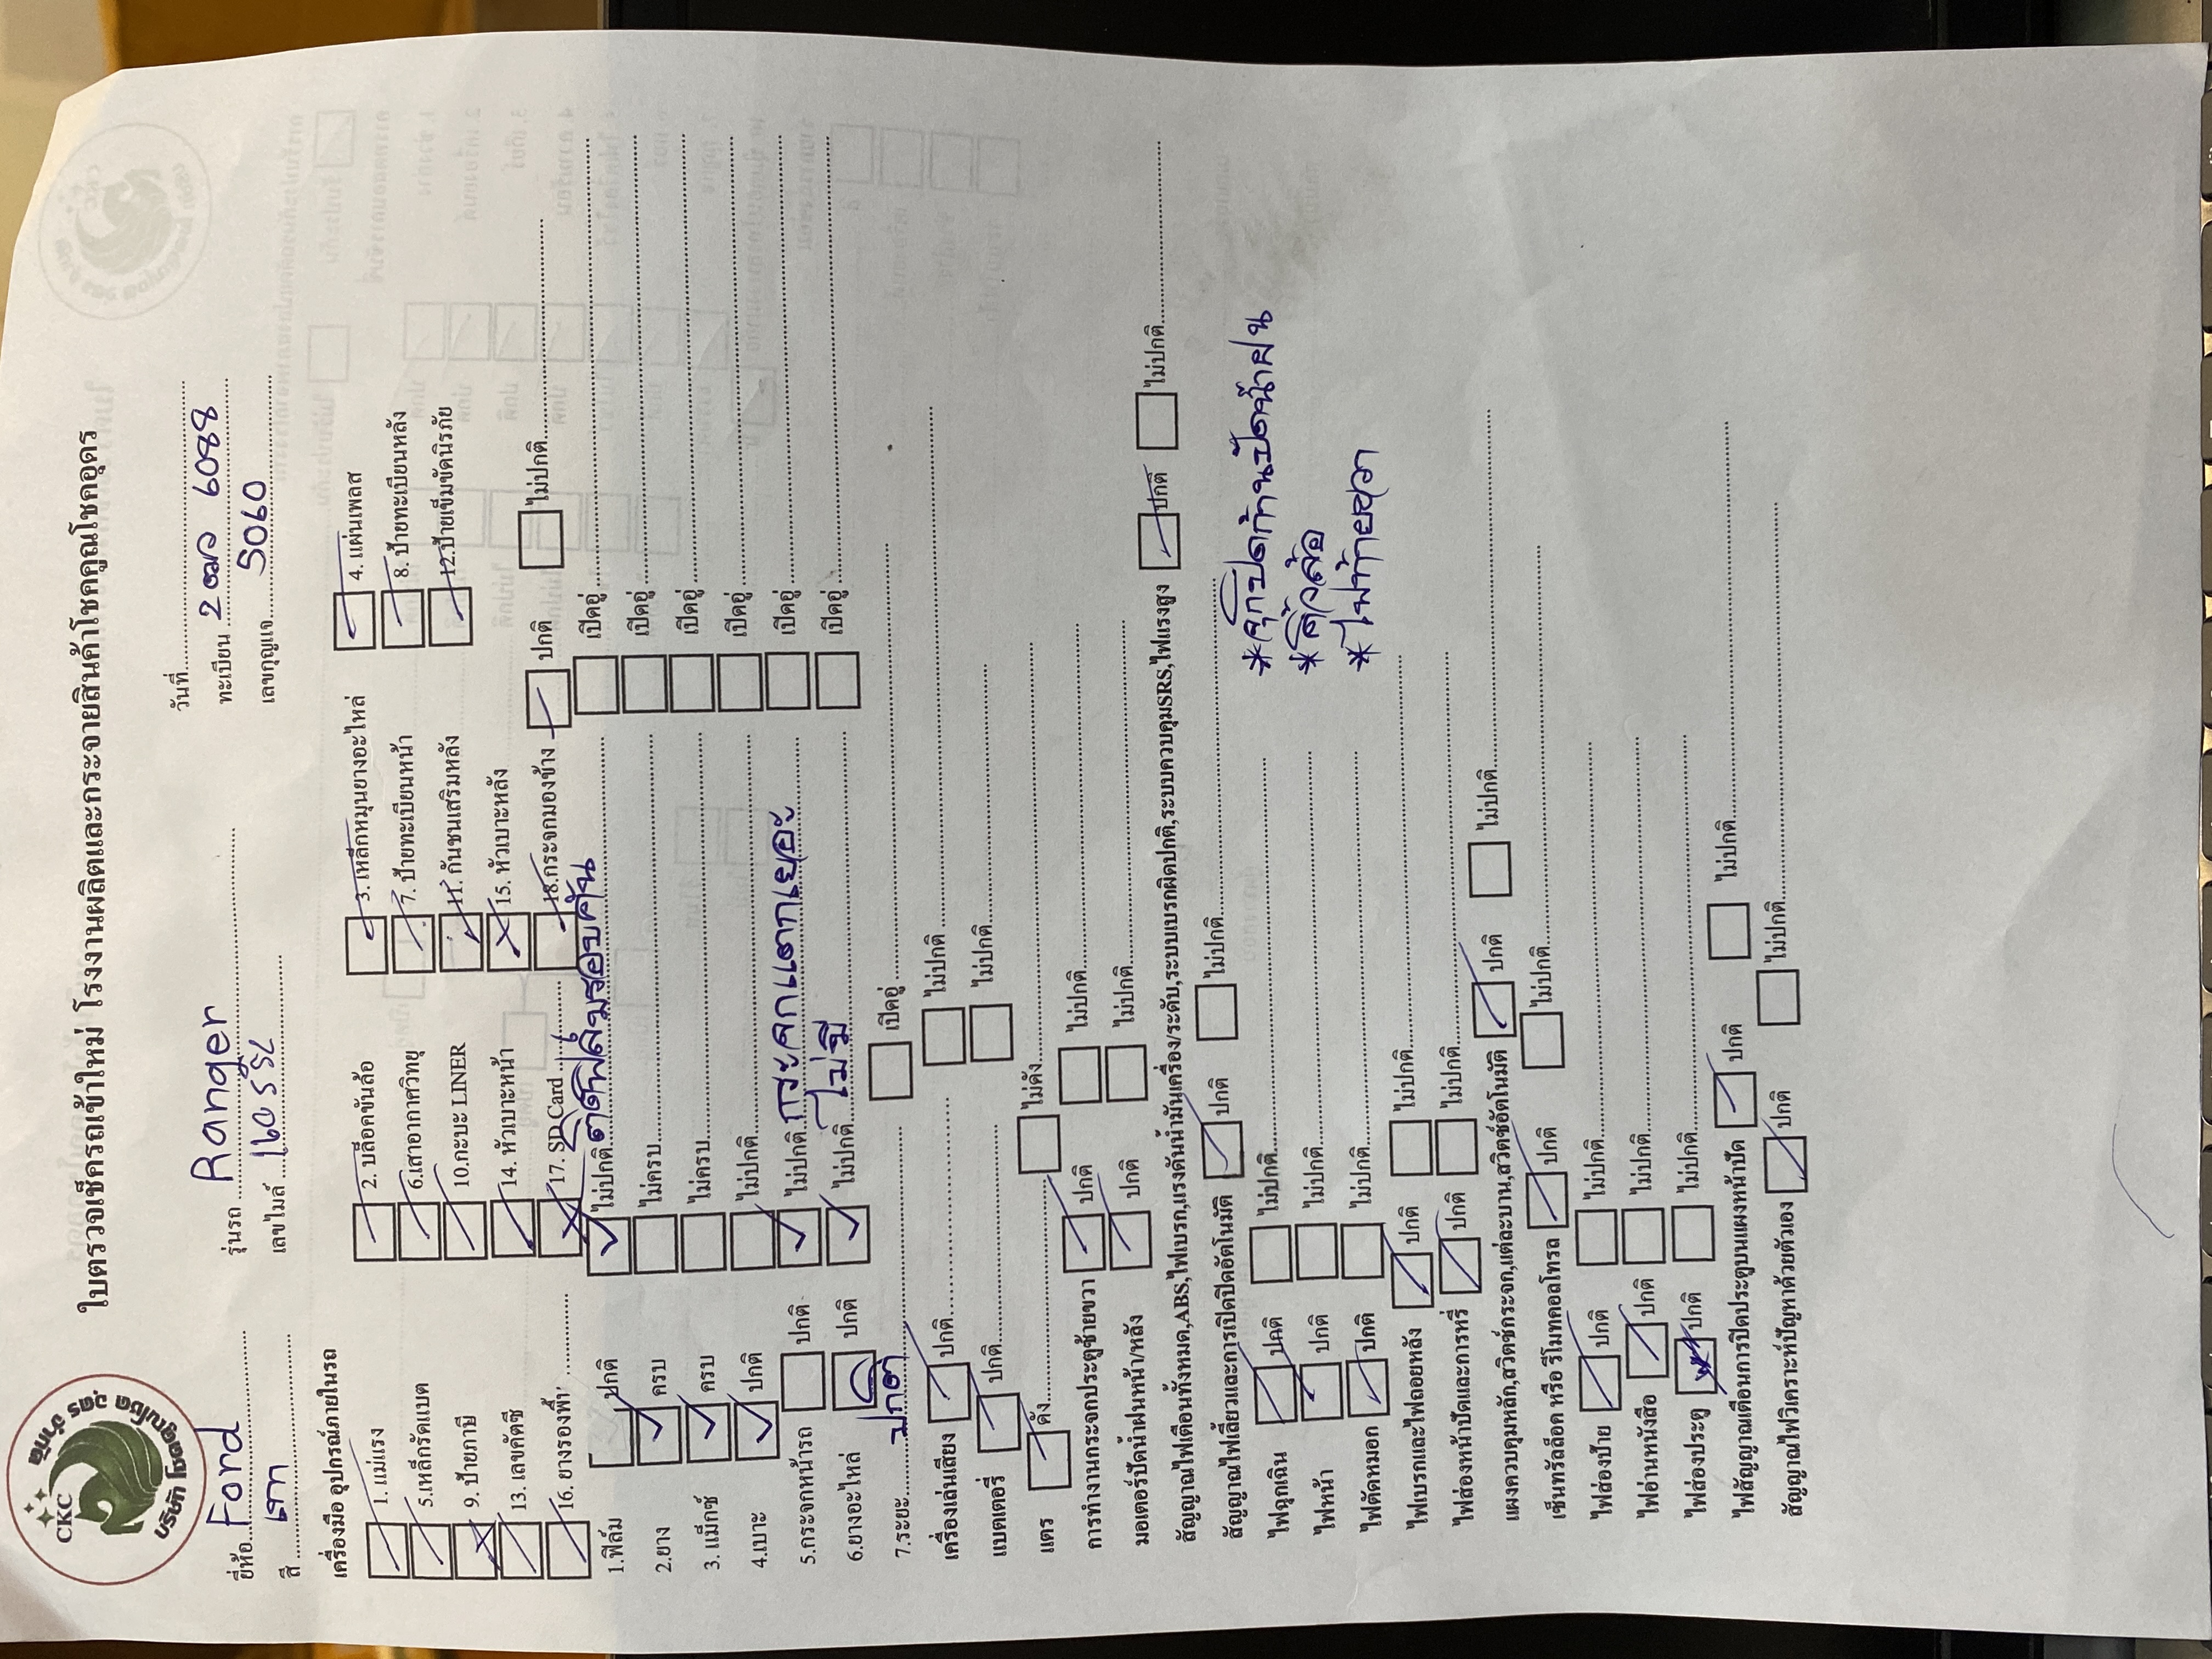 CKC
บริษัท โชคคูณโชค วุฒิ จำกัด
ใบตรวจเช็ครถเข้าใหม่ โรงงานผลิตและกระจายสินค้าโชคคูณโชคอุดร
วันที่
ยี่ห้อ Ford รุ่นรถ Ranger ทะเบียน 2ฒว 6088
สี เทา เลขไมล์ เลขกุญแจ 5060
เครื่องมือ อุปกรณ์ภายในรถ
1. แม่แรง 2. บล็อคขันล้อ 3. เหล็กหมุนยางอะไหล่ 4. แผ่นเพลส
5.เหล็กรัดแบต 6.เสาอากาศวิทยุ 7. ป้ายทะเบียนหน้า 8. ป้ายทะเบียนหลัง
9. ป้ายภาษี 10.กระบะ LINER 11. กันชนเสริมหลัง 12.ป้ายเข็มขัดนิรภัย
13. เลขคัตซี 14. หัวเบาะหน้า 15. หัวเบาะหลัง
16. ยางรองพื้น 17. SD Card 18.กระจกมองข้าง ปกติ ไม่ปกติ
1.ฟิล์ม ปกติ ไม่ปกติ ติดฟิล์มรอบคัน เปิดอู่
2.ยาง ครบ ไม่ครบ เปิดอู่
3. แม็กซ์ ครบ ไม่ครบ เปิดอู่
4.เบาะ ปกติ ไม่ปกติ เปิดอู่
5.กระจกหน้ารถ ปกติ ไม่ปกติ กระจกแตกเยอะ เปิดอู่
6.ยางอะไหล่ ปกติ ไม่ปกติ ไม่มี เปิดอู่
7.ระยะ ปกติ เปิดอู่
เครื่องเล่นเสียง ปกติ ไม่ปกติ
แบตเตอรี่ ปกติ ไม่ปกติ
แตร ดัง ไม่ดัง
การทำงานกระจกประตูซ้ายขวา ปกติ ไม่ปกติ
มอเตอร์ปัดน้ำฝนหน้า/หลัง ปกติ ไม่ปกติ
สัญญาณไฟเตือนทั้งหมด,ABS,ไฟเบรก,แรงดันน้ำมันเครื่อง/ระดับ,ระบบเบรกผิดปกติ,ระบบควบคุมSRS,ไฟแรงสูง ปกติ ไม่ปกติ
สัญญาณไฟเลี้ยวและการเปิดปิดอัตโนมัติ ปกติ ไม่ปกติ
ไฟฉุกเฉิน ปกติ ไม่ปกติ *จุกปิดก้านปัดน้ำฝน
ไฟหน้า ปกติ ไม่ปกติ *คิ้วล้อ
ไฟตัดหมอก ปกติ ไม่ปกติ *ไฟท้ายขวา
ไฟเบรกและไฟถอยหลัง ปกติ ไม่ปกติ
ไฟส่องหน้าปัดและการหรี่ ปกติ ไม่ปกติ
แผงควบคุมหลัก,สวิตช์กระจก,แต่ละบาน,สวิตช์อัตโนมัติ ปกติ ไม่ปกติ
เซ็นทรัลล็อค หรือ รีโมทคอลโทรล ปกติ ไม่ปกติ
ไฟส่องป้าย ปกติ ไม่ปกติ
ไฟอ่านหนังสือ ปกติ ไม่ปกติ
ไฟส่องประตู ปกติ ไม่ปกติ
ไฟสัญญาณเตือนการปิดประตูบนแผงหน้าปัด ปกติ ไม่ปกติ
สัญญาณไฟวิเคราะห์ปัญหาด้วยตัวเอง ปกติ ไม่ปกติ